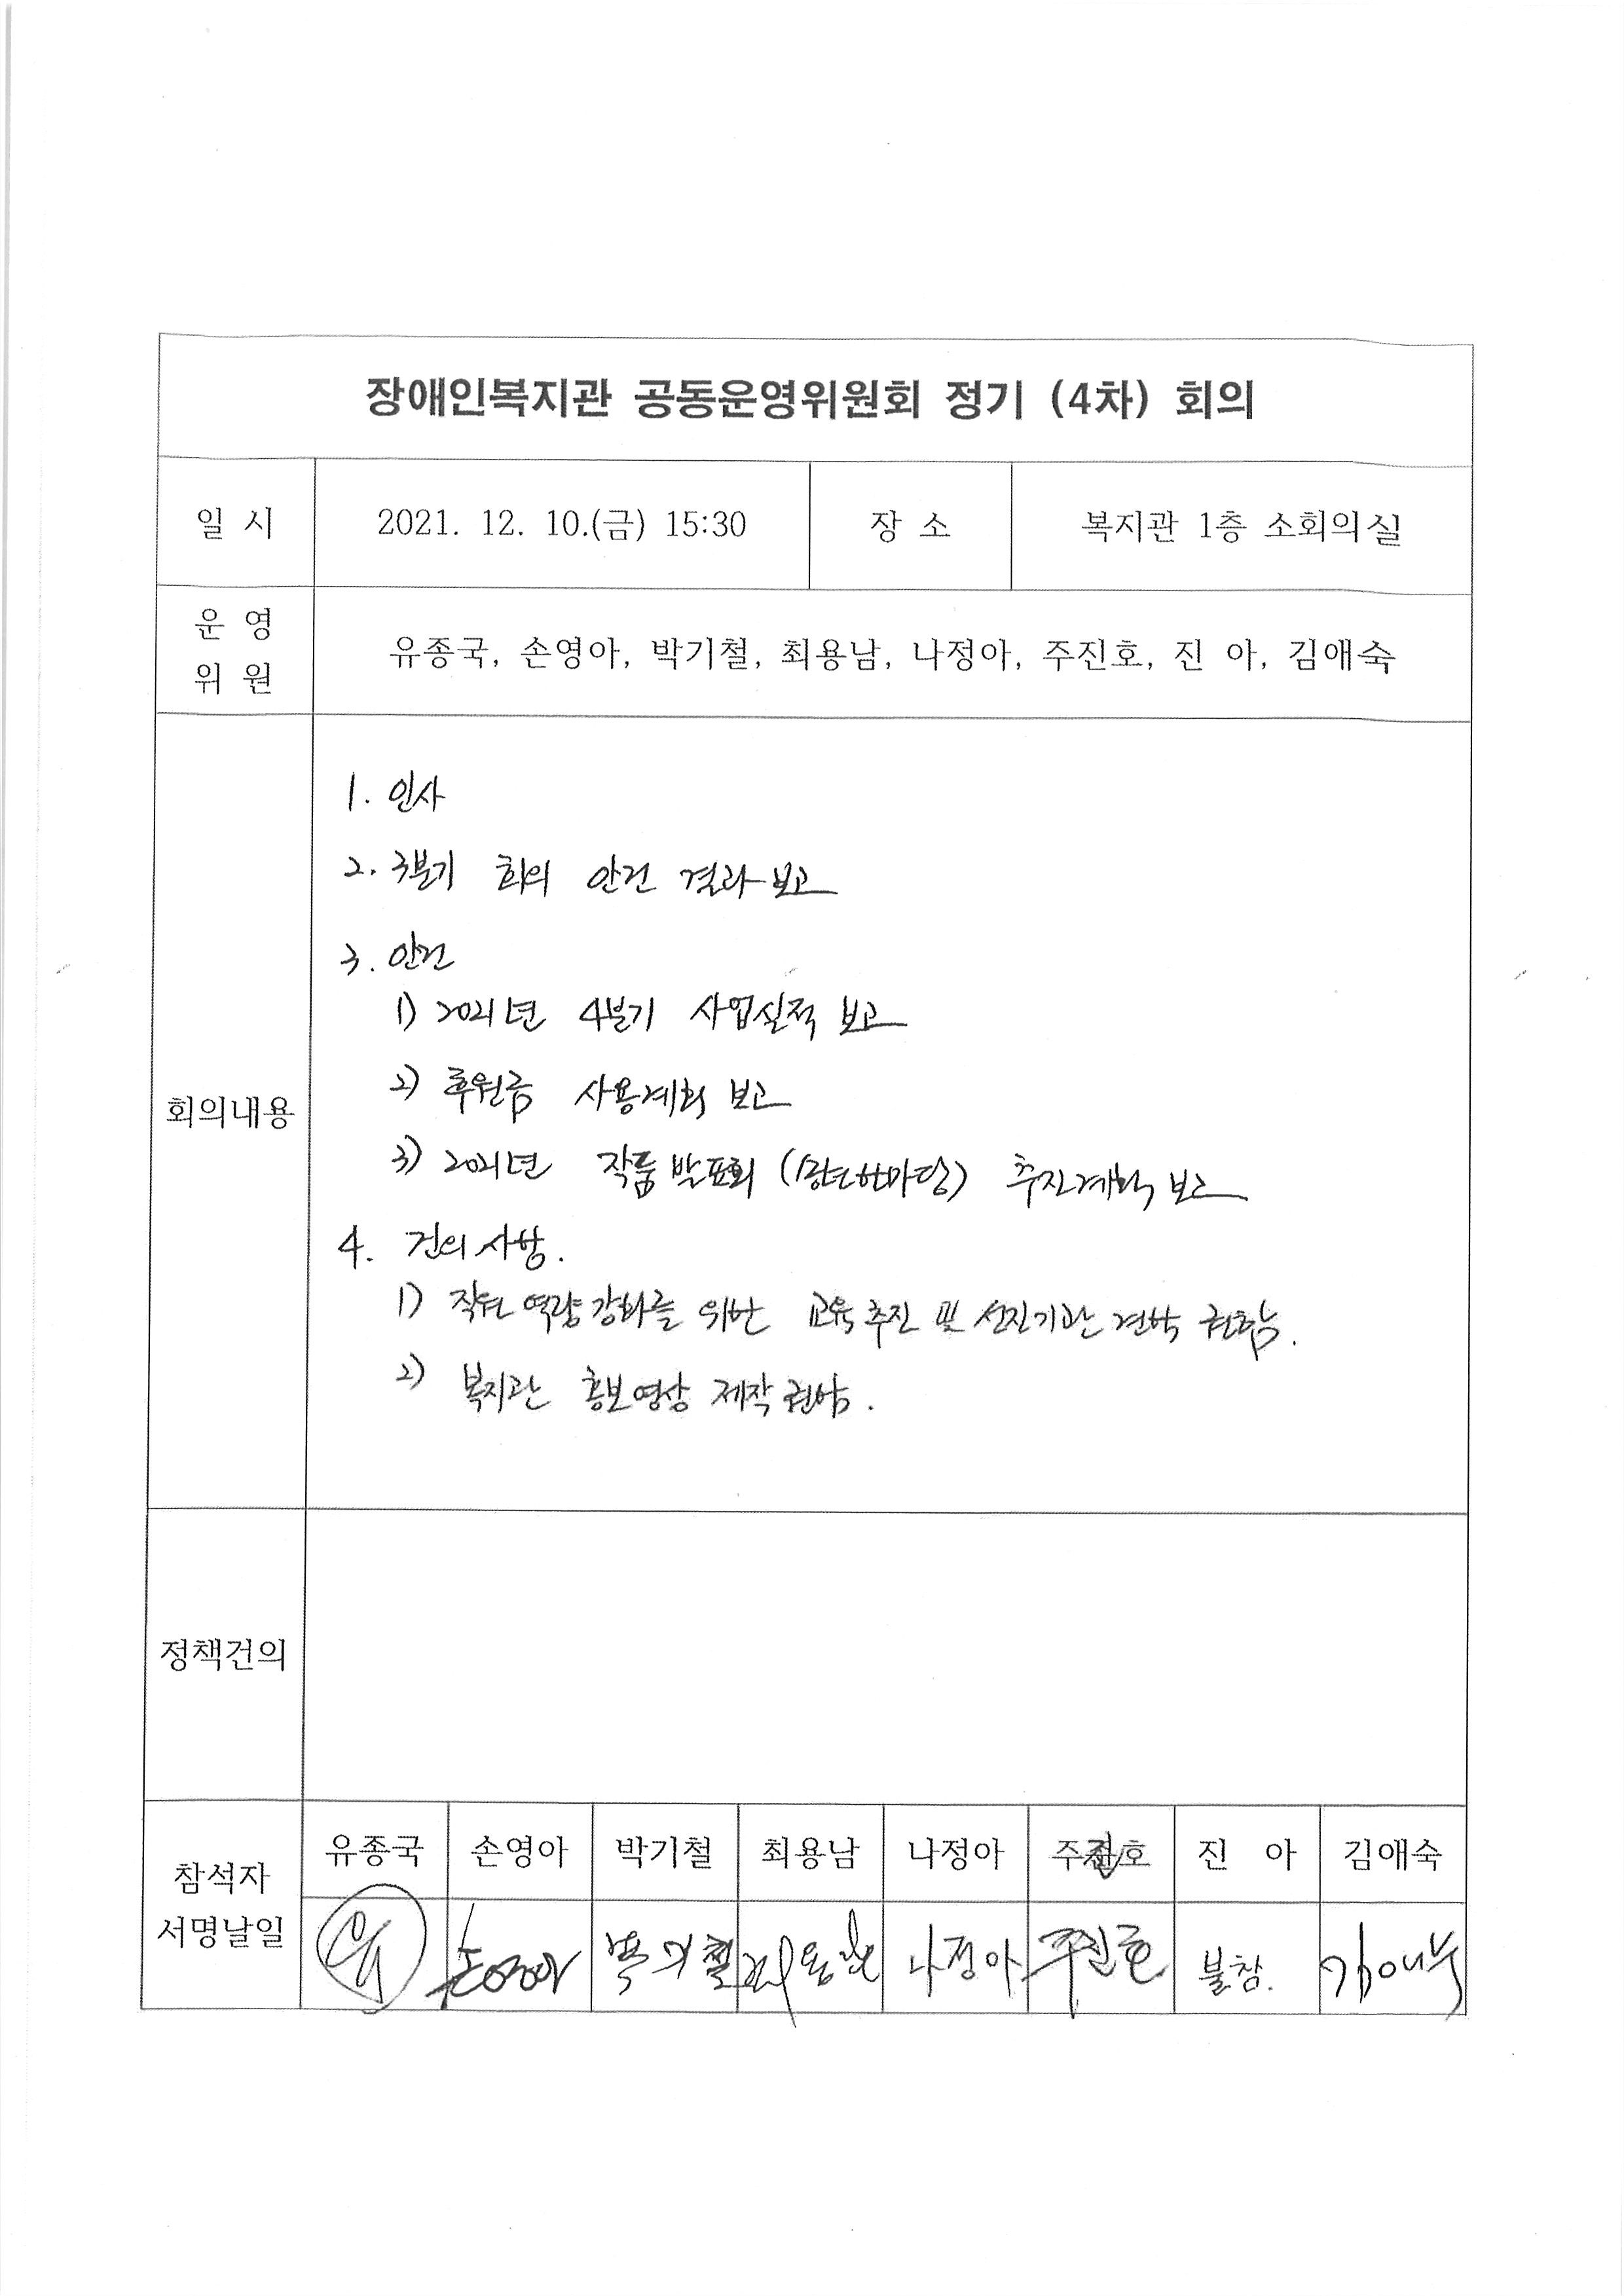 장애인복지관 공동운영위원회 정기 (4차) 회의
일 시 2021. 12. 10.(금) 15:30 장 소 복지관 1층 소회의실
운 영
위 원
유종국, 손영아, 박기철, 최용남, 나정아, 주진호, 진 아, 김애숙
회의내용
1. 인사
2. 3분기 회의 안건 결과보고
3. 안건
1) 2021년 4분기 사업실적 보고
2) 후원금 사용계획 보고
3) 2021년 작품발표회 추진계획 보고
4. 건의사항.
1) 직원 역량강화를 위한 교육추진 및 선진기관 견학 권함.
2) 복지관 홍보영상 제작 권함.
정책건의
참석자
서명날일
유종국 손영아 박기철 최용남 나정아 주진호 진 아 김애숙
손영아 박기철 최용남 나정아 주진호 불참. 김애숙